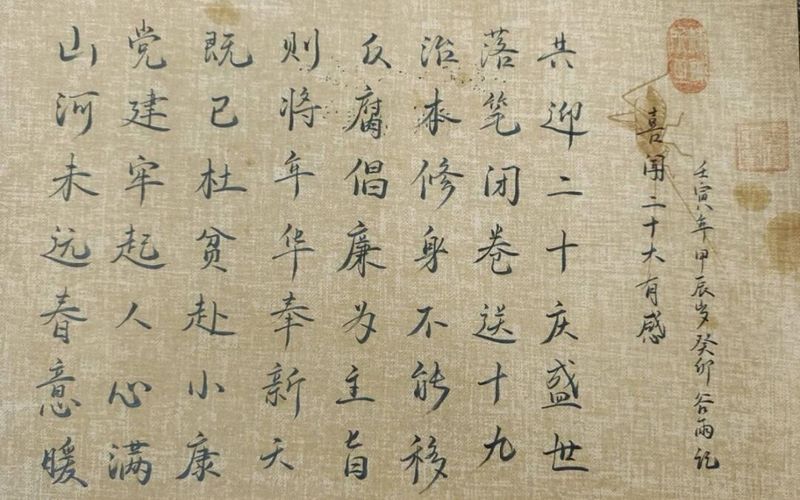 山河未远春意暖
党建牢起人心满
既已杜贫赴小康
则将年华奉新天
反腐倡廉为主旨
治本修身不能移
落笔闭卷送十九
共迎二十庆盛世
喜闻二十大有感
壬寅年甲辰岁癸卯谷雨记